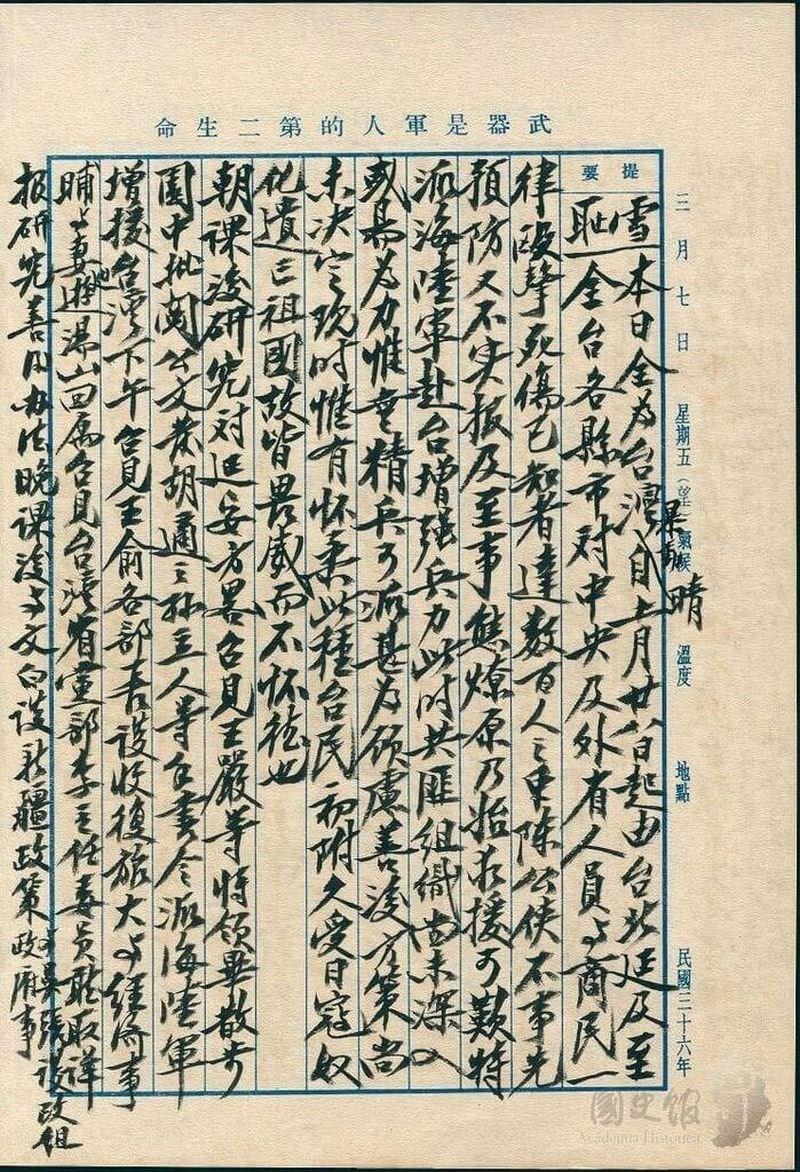 武器是軍人的第二生命
三月七日 星期五(望) 氣候 晴 溫度 地點 民國三十六年
提要
雪本日全為台灣暴動自上月廿八日起由台北延及至
恥全台各縣市對中央及外省人員与商民一
律毆擊死傷已知者達數百人之眾陳公俠不事先
預防又不实报及至事態燎原乃始求援可歎特
派海陸軍赴台增強兵力此时共匪組織尚未深入
或易為力惟無精兵可派甚為顧慮善後方策尚
未決定現时惟有怀柔此種台民初附久受日寇奴
化遺亡祖國故皆畏威而不怀德也
朝課後研究对延安方畧召見王嚴等將領畢散步
園中批閱公文發胡適之孫立人等手書令派海陸軍
增援台灣下午召見王俞各部長談收復旅大与經济事
晡与妻遊湯山回寓召見台灣省黨部李主任委員聽取詳
报研究善後办法晚課後与文白談新疆政策与 張談改組
政府事
國史館
Academia Historica